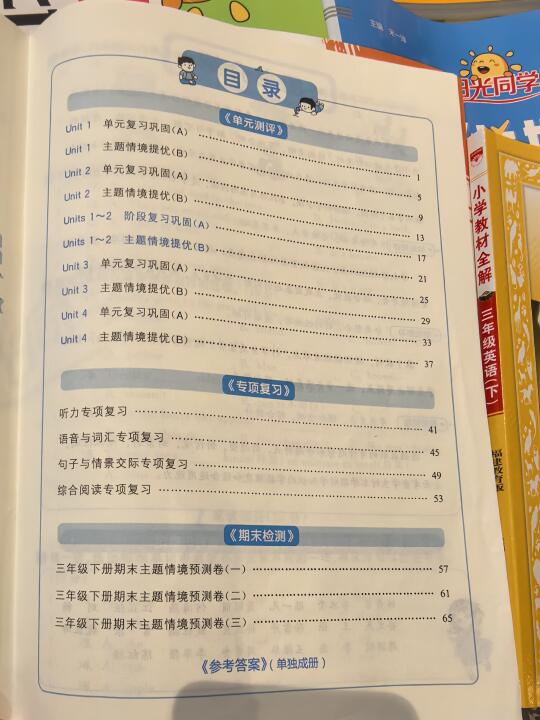 目录
《单元测评》
Unit 1 单元复习巩固(A) 1
Unit 1 主题情境提优(B) 5
Unit 2 单元复习巩固(A) 9
Unit 2 主题情境提优(B) 13
Units 1～2 阶段复习巩固(A) 17
Units 1～2 主题情境提优(B) 21
Unit 3 单元复习巩固(A) 25
Unit 3 主题情境提优(B) 29
Unit 4 单元复习巩固(A) 33
Unit 4 主题情境提优(B) 37
《专项复习》
听力专项复习 41
语音与词汇专项复习 45
句子与情景交际专项复习 49
综合阅读专项复习 53
《期末检测》
三年级下册期末主题情境预测卷(一) 57
三年级下册期末主题情境预测卷(二) 61
三年级下册期末主题情境预测卷(三) 65
《参考答案》(单独成册)
主编
阳光同学
小学教材全解
三年级英语(下)
福建教育版